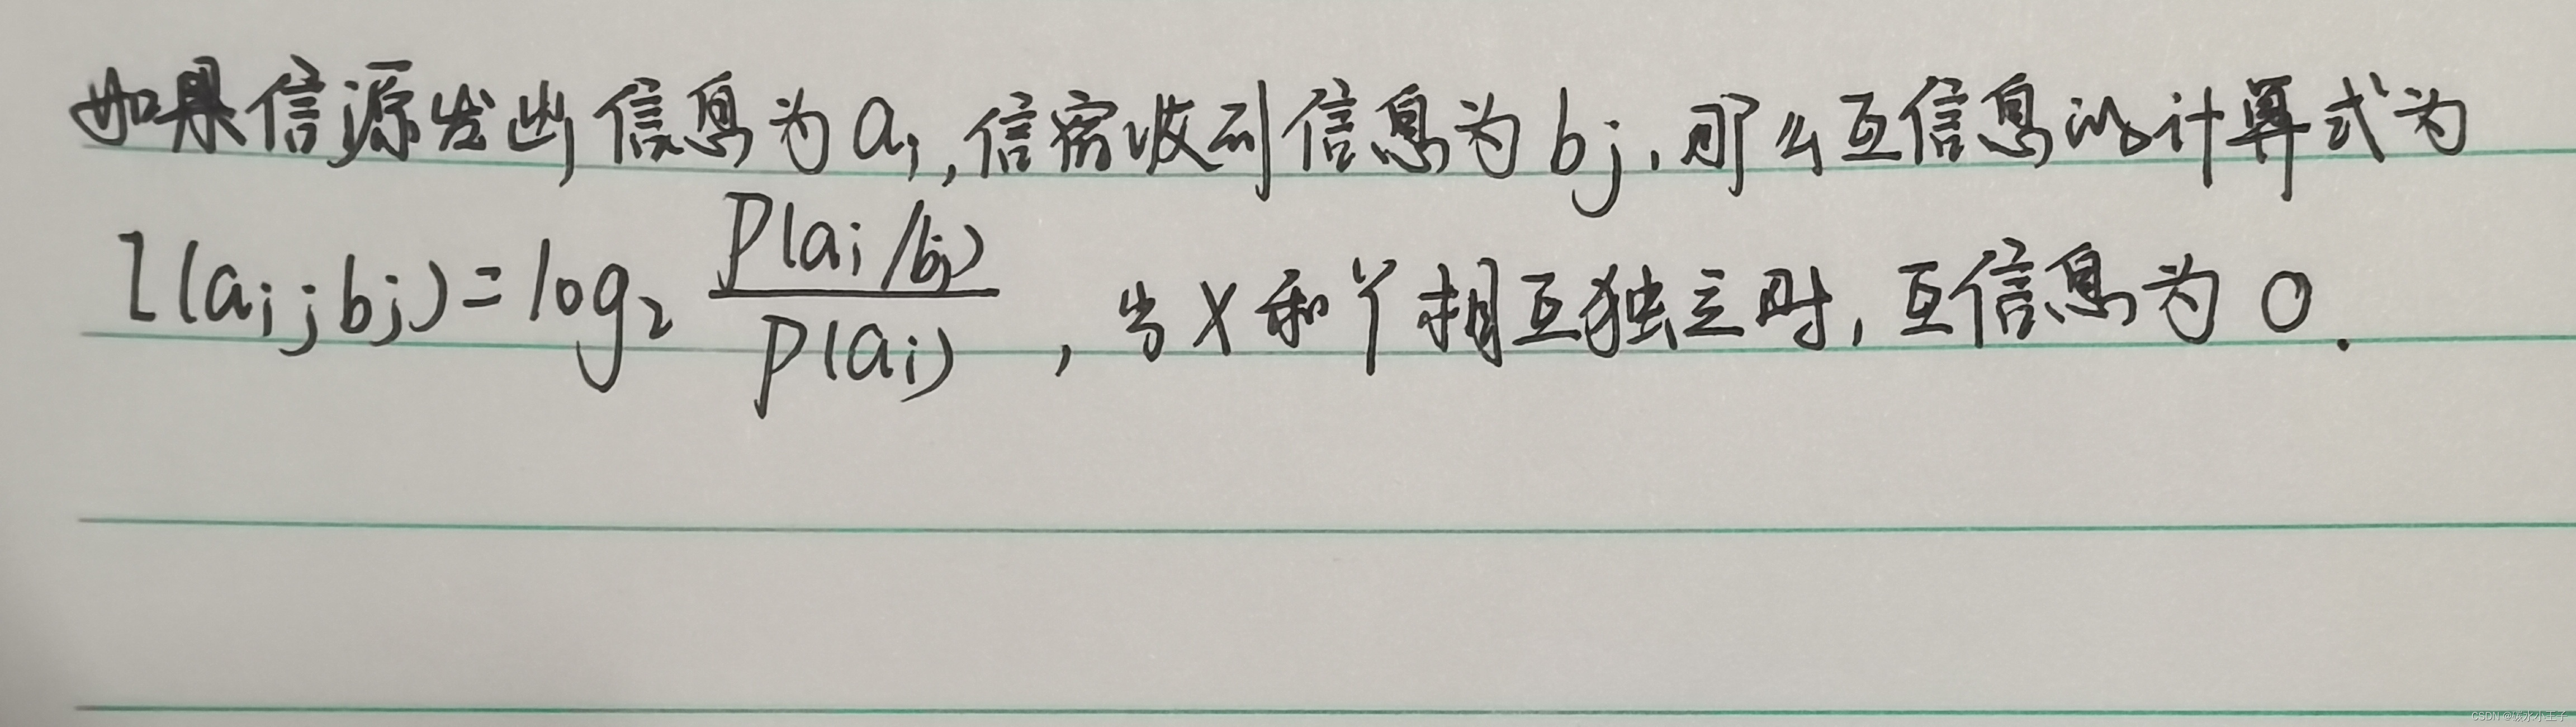 如果信源发出信息为ai,信宿收到信息为bj,那么互信息的计算式为
I(ai;bj)=log₂ p(ai/bj)/p(ai),当X和Y相互独立时,互信息为0.